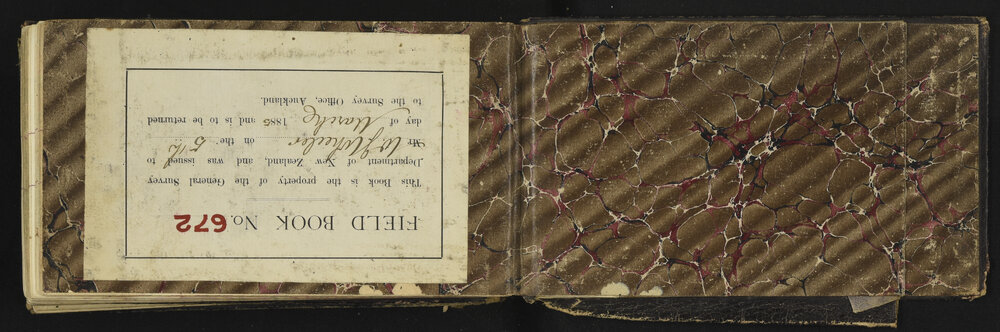 FIELD BOOK No. 672
This Book is the property of the General Survey
Department of New Zealand, and was issued to
Mr W J Wheeler on the 5th
day of March 1886 and is to be returned
to the Survey Office, Auckland.